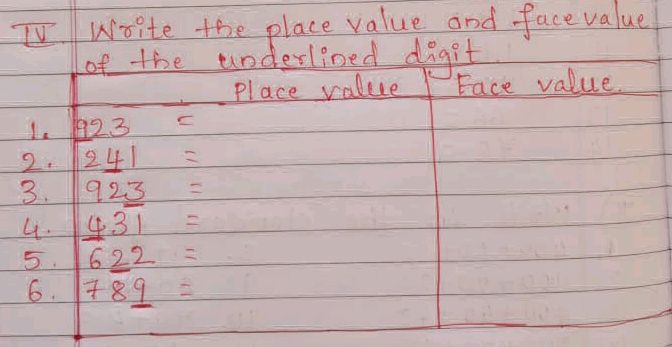 IV Write the place value and face value
of the underlined digit.
Place value Face value.
1. 923 =
2. 241 =
3. 923 =
4. 431 =
5. 622 =
6. 789 =